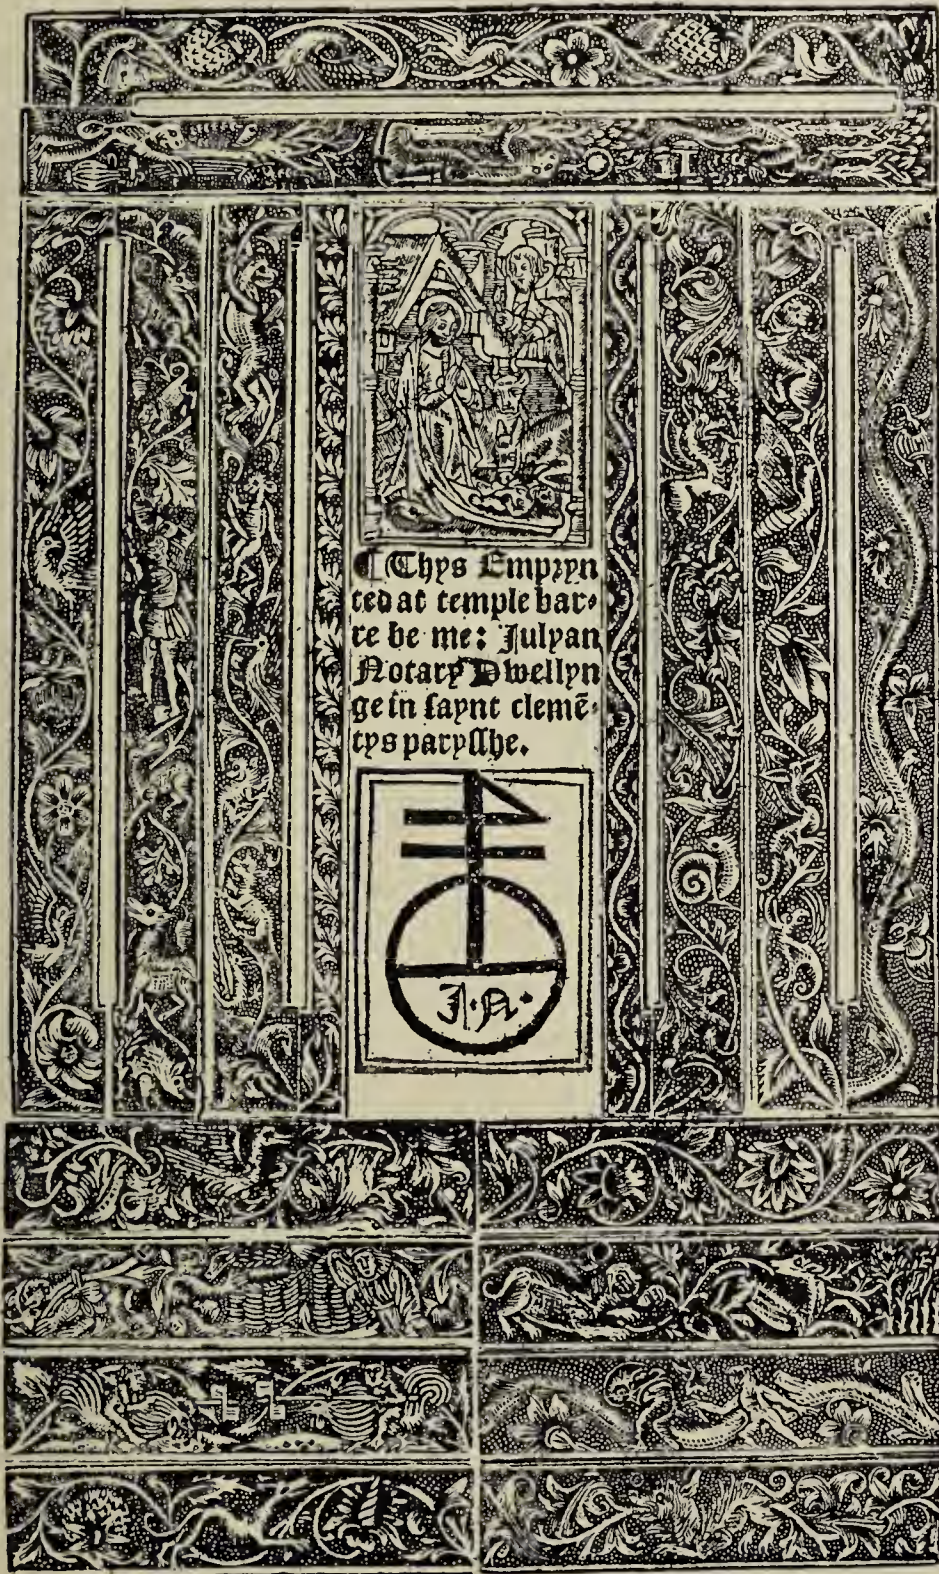 ¶ Thys Empryn
ted at temple bar⸗
re be me: Julyan
Notary Dwellyn
ge in saynt clemē⸗
tys parysshe.
J·N·